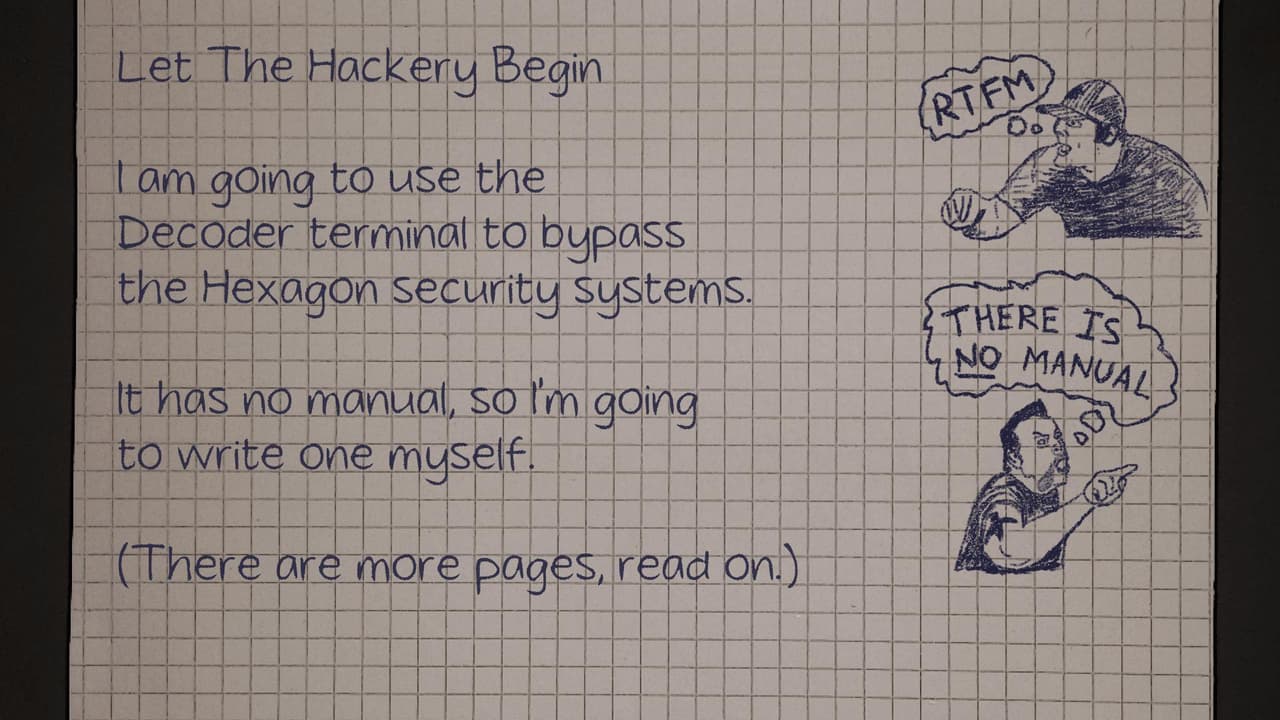 Let The Hackery Begin
I am going to use the
Decoder terminal to bypass
the Hexagon security systems.
It has no manual, so I'm going
to write one myself.
(There are more pages, read on.)
RTFM
THERE IS
NO MANUAL